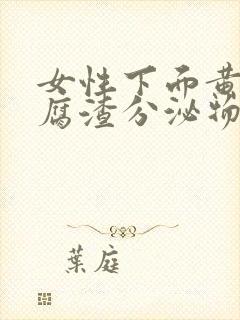 女性下面黄
腐渣分泌物
葉庭